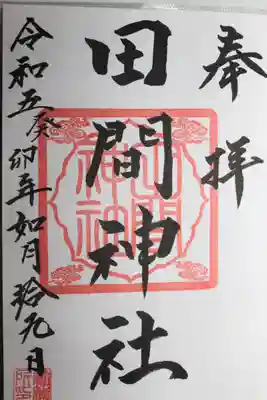 奉拝
田間神社
令和五癸卯年如月拾九日